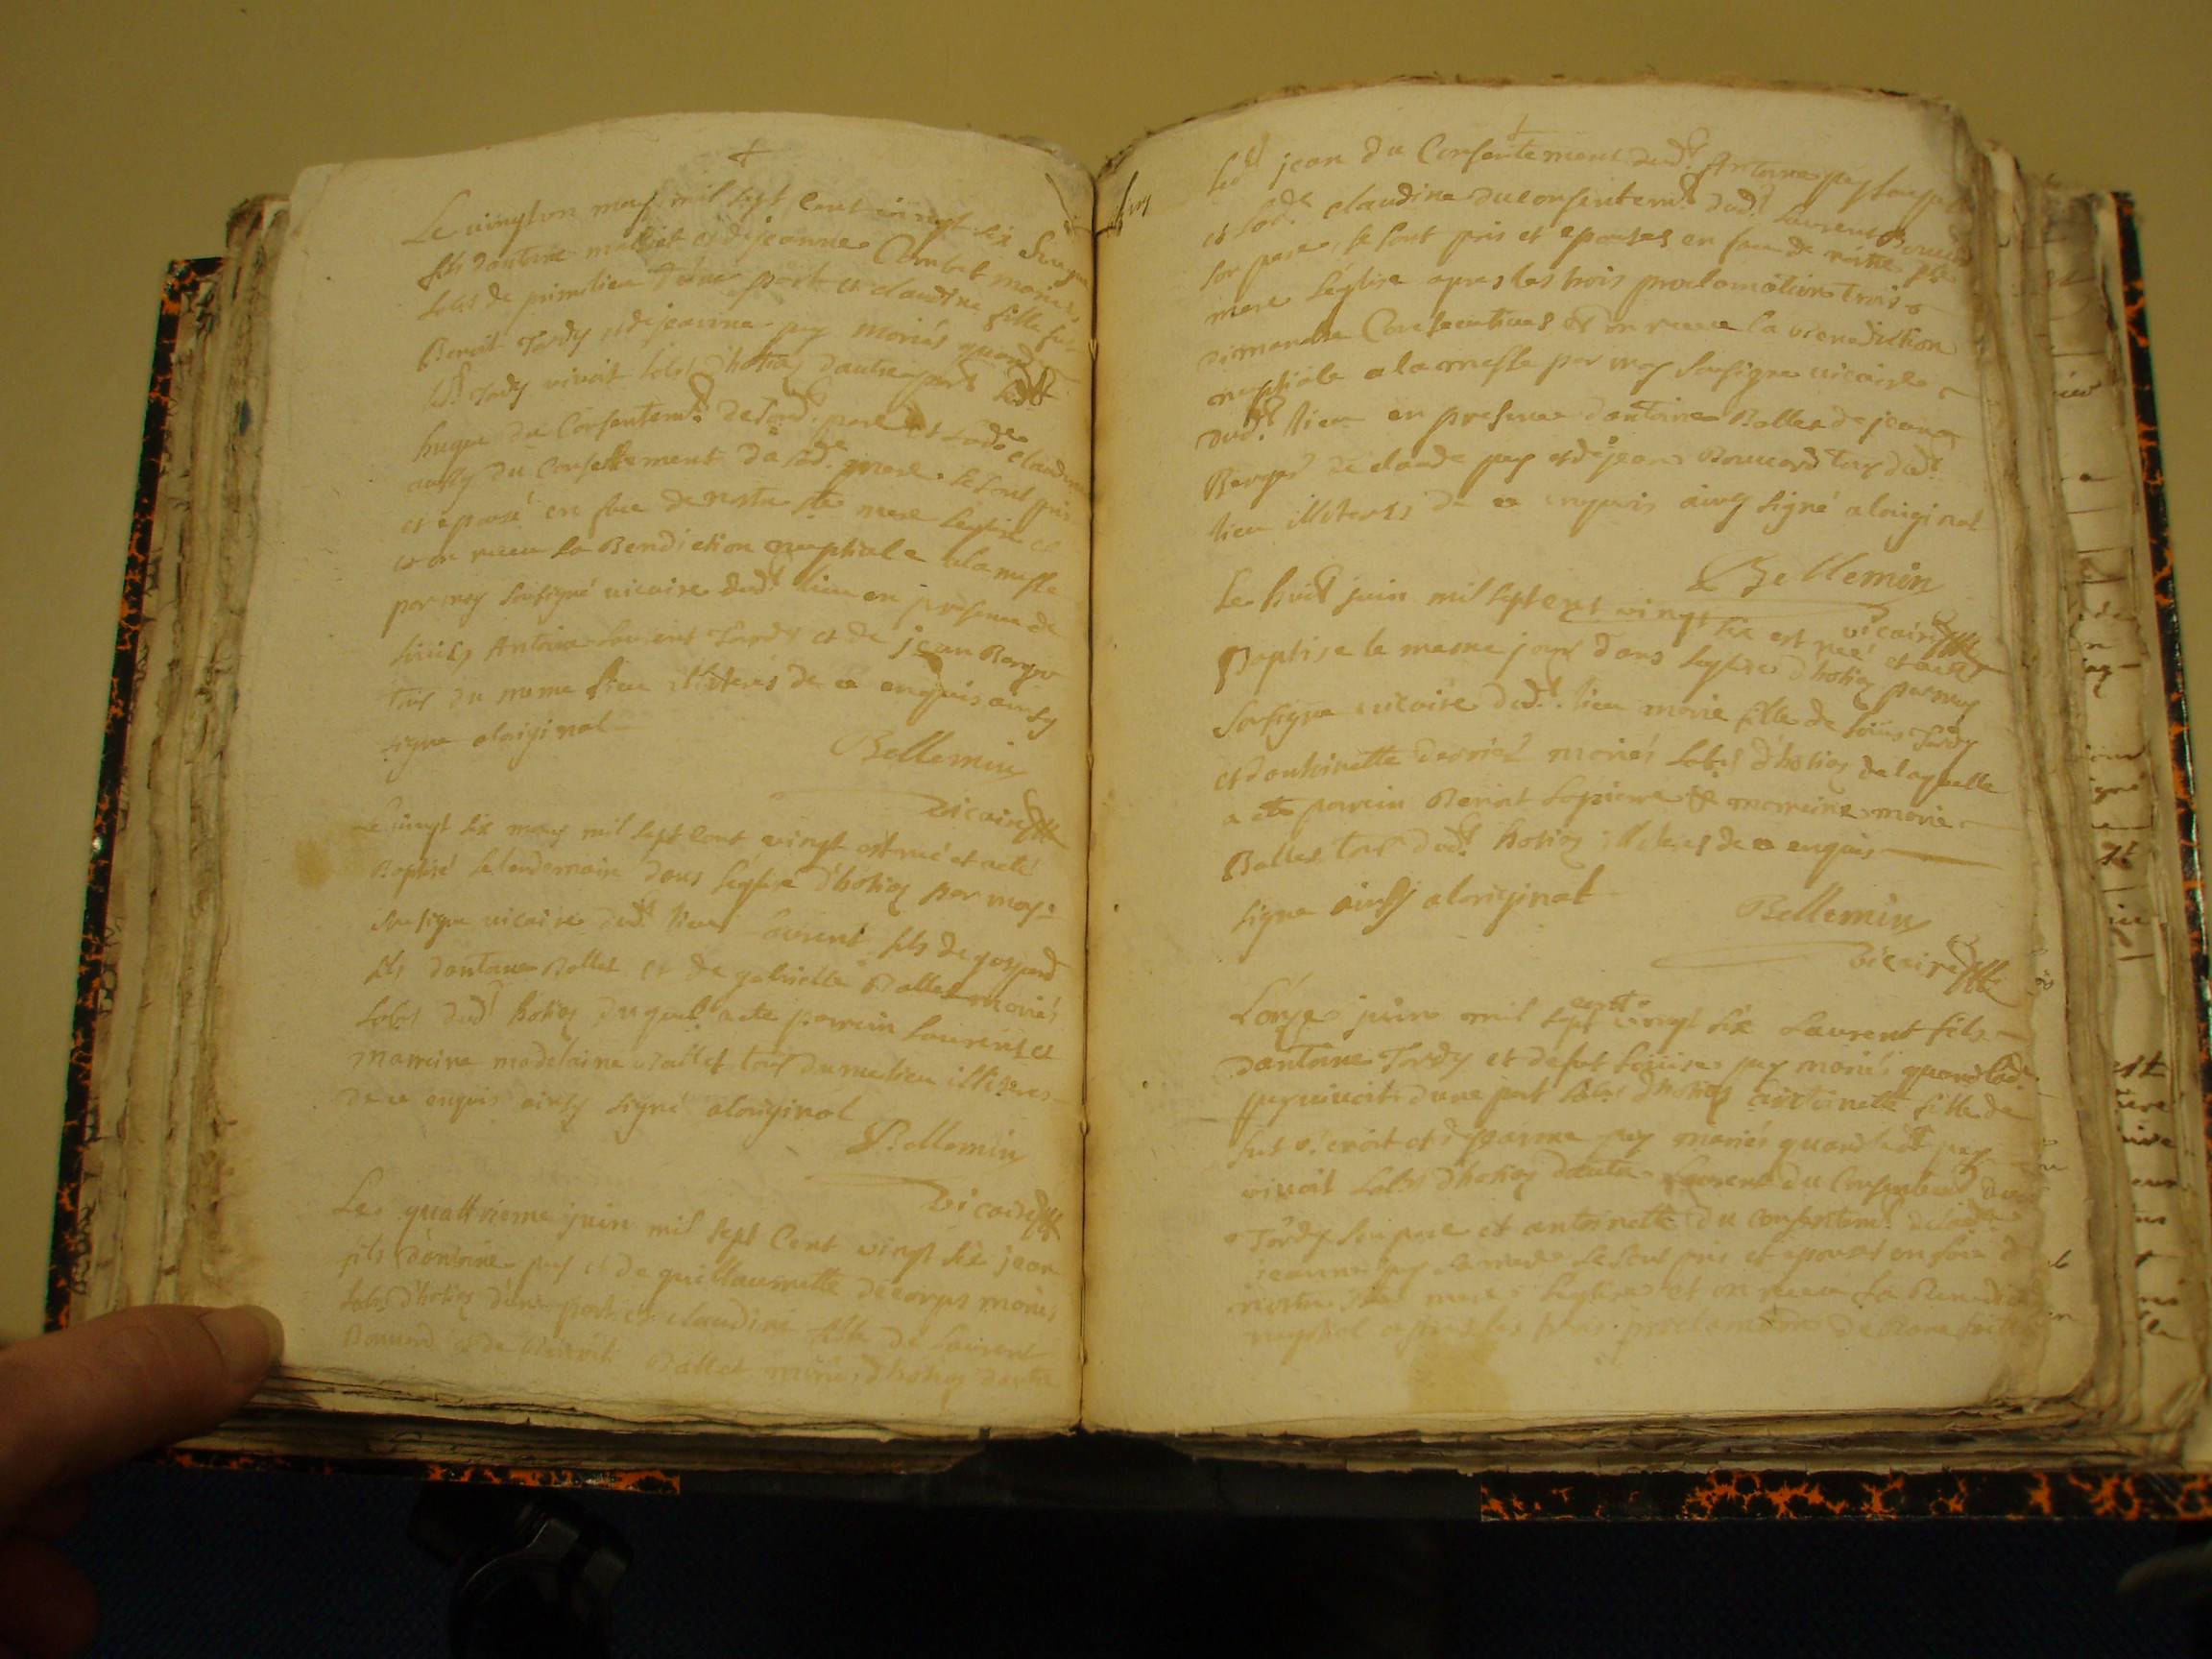 Le vingt un may mil sept cent vingt six hugue
fils dantoine malliet et de jeanne Combet mariés
de premilieu d'une part et claudine fille fut
Benoit Tardy et de jeanne puy mariés quand
led.t Tardy vivoit d'hotiey dautre part led.t
hugue du Consentem.t de sond.t pere et lad.e claudine
aussy du Consentement de sad.e mere se sont pris
et epousé en face de nostre s.te mere leglise et
et on receu la Benediction nuptiale a la messe
par moy sousigné vicaire dud.t lieu en presence de
Antoine Laurent Tardy et de jean Berger
tous du meme lieu illiteres de ce enquis ainsy
signe aloriginal
Bellemin
vicaire
Le vingt six may mil sept cent vingt est né et a eté
Baptisé le lendemain dans l'église d'hotiey par moy
sousigne vicaire dud.t lieu Laurent fils de gaspard
fils dantoine Ballet et de gabrielle Ballet mariés
dud.t hotiey duquel a ete parrein Laurent et
marreine madelaine Ballet tous du me lieu illiteres
de ce enquis ainsy signé aloriginal
Bellemin
vicaire
Le quattrieme juin mil sept Cent vingt six jean
fils d'antoine puy et de guillaumette decorps mariés
d'hotiey d'une part et claudine fille de Laurent
Bouvard et de Ballet mariés d'hotiey dautre
led.t jean du Consentement dud.t Antoine puy son pere
et lad.e claudine du consentem.t dud.t Laurent Bouvard
son pere, se sont pris et epouses en face de nôtre s.te
mere l'église apres les trois proclamations trois
dimanche Consecutives et on receu la benediction
nuptiale a la messe par moy sousigne vicaire
dud.t lieu en presence d'antoine Ballet de jean
Berger de claude puy et de jean Bouvard tous dud.t
lieu illiteres de ce enquis ainsy signé aloriginal
Bellemin
vicaire
Le huit juin mil sept cent vingt six est née et a eté
Baptise le mesme jour dans leglise d'hotiey par moy
sousigne vicaire dud.t lieu marie fille de Louis Tardy
et d'antoinette mariés d'hotiey de laquelle
a ete parrein Benoit Lapierre et marreine marie
Ballet tous dud.t hotiey illiteres de ce enquis
signe ainsy aloriginal
Bellemin
vicaire
L'onze juin mil sept cent vingt six Laurent fils
dantoine Tardy et de fut Louise puy mariés quand lad.e
puy vivoit d'une part d'hotiey antoinette fille de
fut Benoit et de jeanne puy mariés quand led.t puy
vivoit d'hotiey dautre Laurent du Consentem.t dud.t
Tardy son pere et antoinette du consentem.t de lad.e
jeanne puy sa mere se sont pris et epousés en face de
nostre s.te mere l'eglise et on receu la Benediction
nuptial apres les trois proclamations de